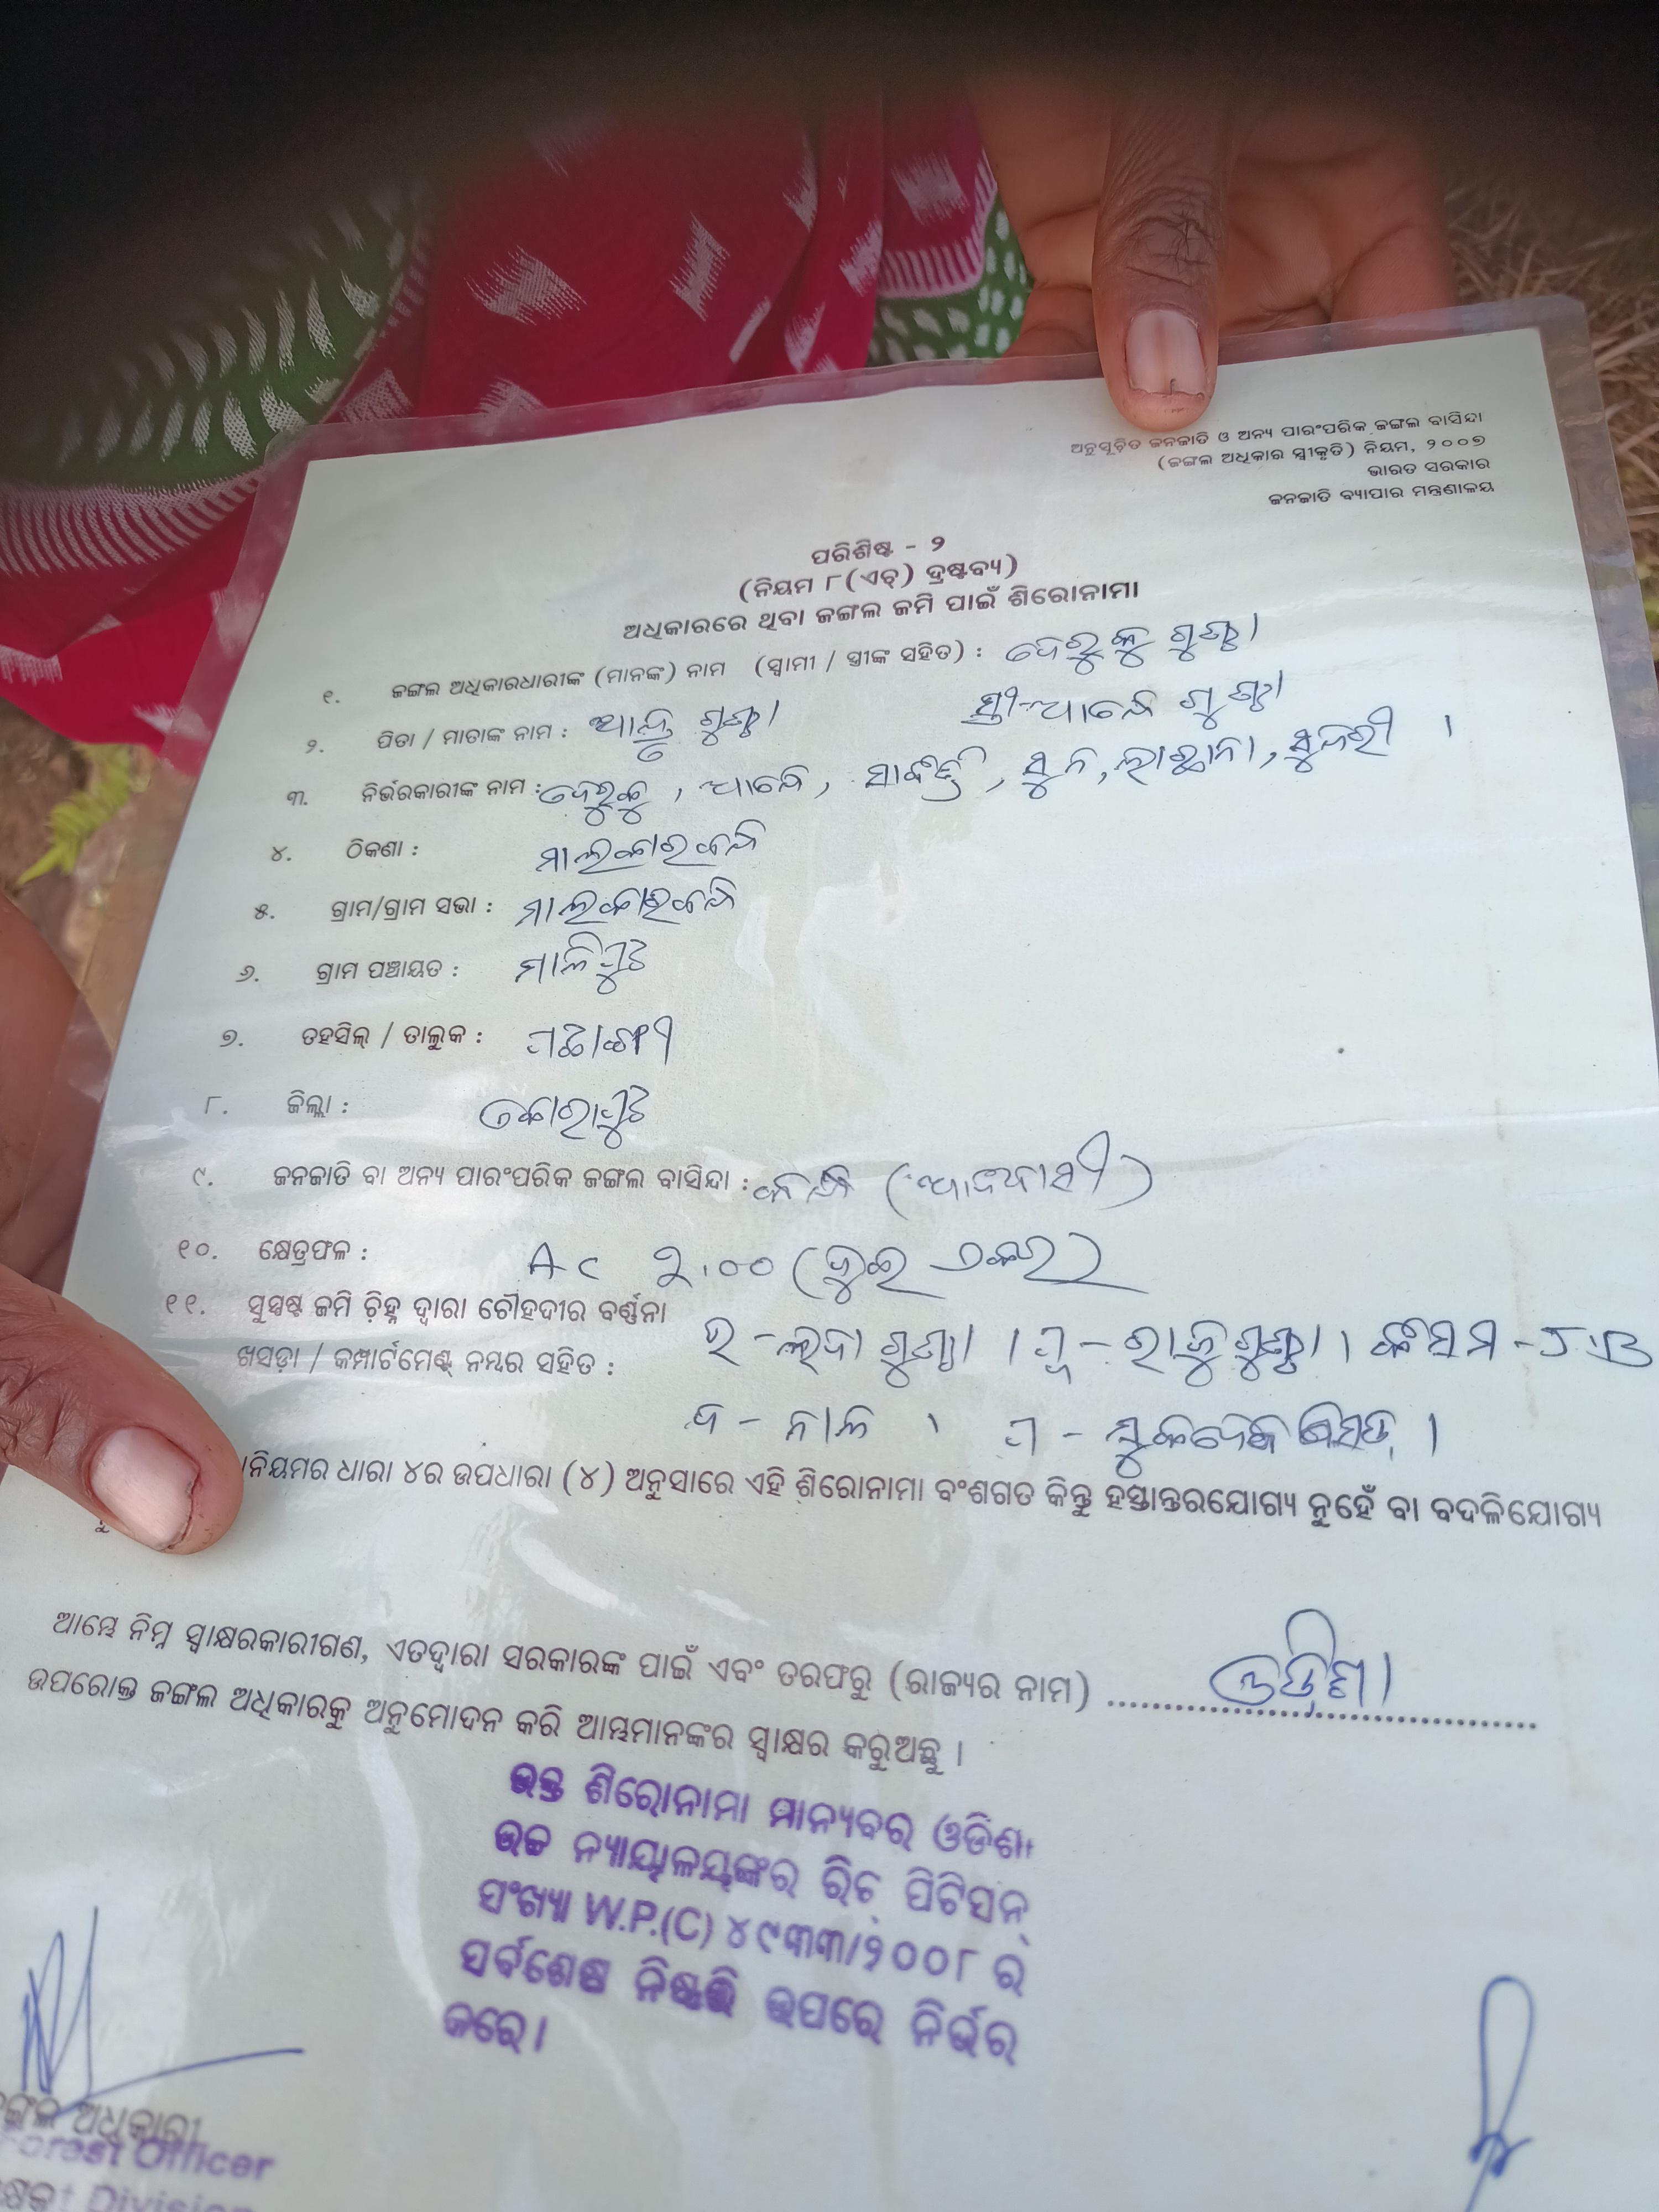 ଅନୁସୂଚିତ ଜନଜାତି ଓ ଅନ୍ୟ ପାରଂପରିକ ଜଙ୍ଗଲ ବାସିନ୍ଦା
(ଜଙ୍ଗଲ ଅଧିକାର ସ୍ୱୀକୃତି) ନିୟମ, ୨୦୦୭
ଭାରତ ସରକାର
ଜନଜାତି ବ୍ୟାପାର ମନ୍ତ୍ରଣାଳୟ
ପରିଶିଷ୍ଟ - ୨
(ନିୟମ ୮(ଏଚ୍) ଦ୍ରଷ୍ଟବ୍ୟ)
ଅଧିକାରରେ ଥିବା ଜଙ୍ଗଲ ଜମି ପାଇଁ ଶିରୋନାମା
୧. ଜଙ୍ଗଲ ଅଧିକାରଧାରୀଙ୍କ (ମାନଙ୍କ) ନାମ (ସ୍ୱାମୀ / ସ୍ତ୍ରୀଙ୍କ ସହିତ) : ଦେରୁକୁ ଗୁଣ୍ଠା
ସ୍ତ୍ରୀ-ଆନ୍ଦେ ଗୁଣ୍ଠା
୨. ପିତା / ମାତାଙ୍କ ନାମ : ଗୁଣ୍ଠା
୩. ନିର୍ଭରକାରୀଙ୍କ ନାମ : ଦେରୁକୁ, ସୁନ, ସୁନ୍ଦରୀ ।
୪. ଠିକଣା :
୫. ଗ୍ରାମ/ଗ୍ରାମ ସଭା :
୬. ଗ୍ରାମ ପଞ୍ଚାୟତ : ମାଳିପୁଟ
୭. ତହସିଲ୍ / ତାଲୁକ : ପଟାଙ୍ଗୀ
୮. ଜିଲ୍ଲା : କୋରାପୁଟ
୯. ଜନଜାତି ବା ଅନ୍ୟ ପାରଂପରିକ ଜଙ୍ଗଲ ବାସିନ୍ଦା : (ଆଦିବାସୀ)
୧୦. କ୍ଷେତ୍ରଫଳ : Ac ୨.୦୦ (ଦୁଇ ଏକର)
୧୧. ସୁସ୍ପଷ୍ଟ ଜମି ଚିହ୍ନ ଦ୍ୱାରା ଚୌହଦୀର ବର୍ଣ୍ଣନା
ଖସଡ଼ା / କମ୍ପାର୍ଟମେଣ୍ଟ୍ ନମ୍ବର ସହିତ : ଉ - ଗୁଣ୍ଠା । ପୂ - ରାଜୁ ଗୁଣ୍ଠା । କିସମ -
ଦ - ନାଳ । ପ -
ନିୟମର ଧାରା ୪ର ଉପଧାରା (୪) ଅନୁସାରେ ଏହି ଶିରୋନାମା ବଂଶଗତ କିନ୍ତୁ ହସ୍ତାନ୍ତରଯୋଗ୍ୟ ନୁହେଁ ବା ବଦଳିଯୋଗ୍ୟ
ଆମ୍ଭେ ନିମ୍ନ ସ୍ୱାକ୍ଷରକାରୀଗଣ, ଏତଦ୍ଦ୍ୱାରା ସରକାରଙ୍କ ପାଇଁ ଏବଂ ତରଫରୁ (ରାଜ୍ୟର ନାମ) ଓଡ଼ିଶା
ଉପରୋକ୍ତ ଜଙ୍ଗଲ ଅଧିକାରକୁ ଅନୁମୋଦନ କରି ଆମ୍ଭମାନଙ୍କର ସ୍ୱାକ୍ଷର କରୁଅଛୁ ।
ଉକ୍ତ ଶିରୋନାମା ମାନ୍ୟବର ଓଡିଶା
ଉଚ୍ଚ ନ୍ୟାୟାଳୟଙ୍କର ରିଟ୍ ପିଟିସନ୍
ସଂଖ୍ୟା W.P.(C) ୪୯୩୩/୨୦୦୮ ର
ସର୍ବଶେଷ ନିଷ୍ପତ୍ତି ଉପରେ ନିର୍ଭର
କରେ।
ଅଧିକାରୀ
Forest Officer
Division